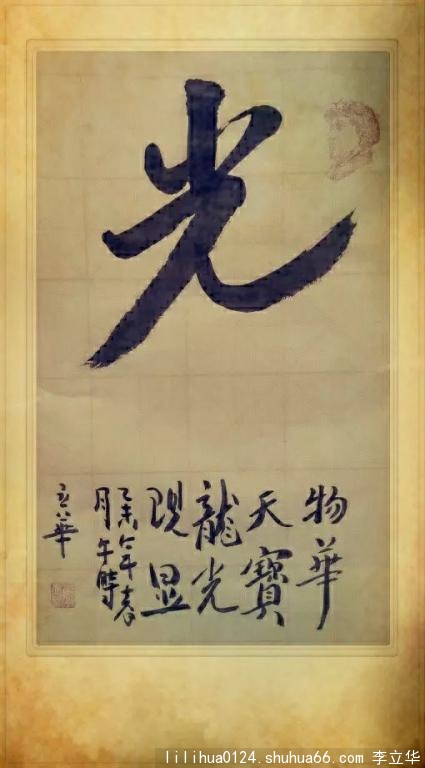 光
物華
天寶
龍光
现显
乙未年春
月午時
立華
lilihua0124.shuhua66.com 李立华